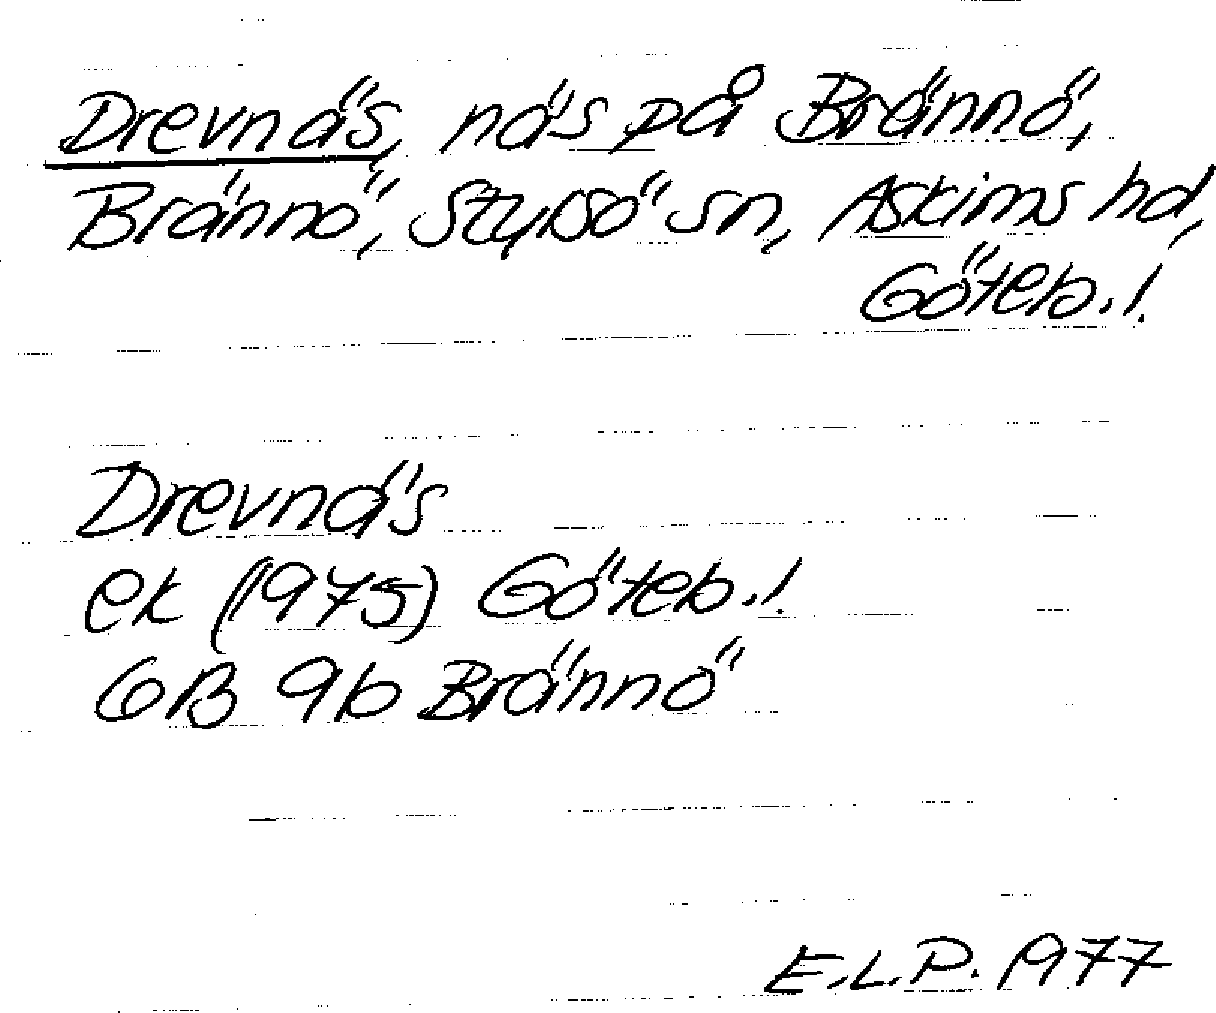 Drevnäs, näs på Brännö,
Brännö, Styrsö sn, Askims hd,
Göteb. l.
Drevnäs
ek (1975) Göteb. l.
GB 9b Brännö
E.L.P. 1977